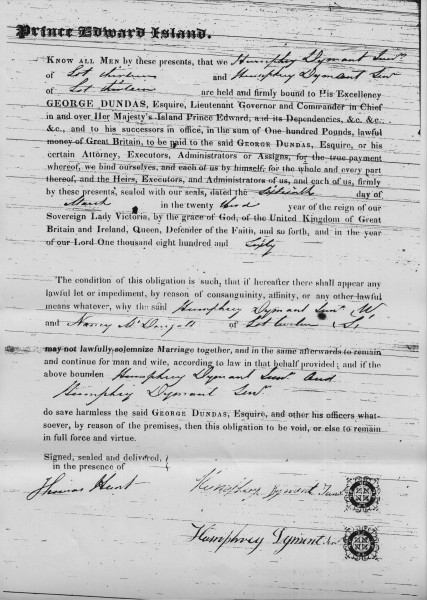 Prince Edward Island.
KNOW ALL MEN by these presents, that we Humphrey Dymant Junr
of Lot thirteen and Humphrey Dymant Senr
of Lot thirteen are held and firmly bound to His Excellency
GEORGE DUNDAS, Esquire, Lieutenant Governor and Commander in Chief
in and over Her Majesty's Island Prince Edward, and its Dependencies, &c. &c.
&c., and to his successors in office, in the sum of One hundred Pounds, lawful
money of Great Britain, to be paid to the said GEORGE DUNDAS, Esquire, or his
certain Attorney, Executors, Administrators or Assigns, for the true payment
whereof, we bind ourselves, and each of us by himself, for the whole and every part
thereof, and the Heirs, Executors, and Administrators of us, and each of us, firmly
by these presents, sealed with our seals, dated the Sixteenth day of
March in the twenty third year of the reign of our
Sovereign Lady Victoria, by the grace of God, of the United Kingdom of Great
Britain and Ireland, Queen, Defender of the Faith, and so forth, and in the year
of our Lord One thousand eight hundred and Sixty
The condition of this obligation is such, that if hereafter there shall appear any
lawful let or impediment, by reason of consanguinity, affinity, or any other lawful
means whatever, why the said Humphrey Dymant Junr W
and Nancy McDougall of Lot twelve S
may not lawfully solemnize Marriage together, and in the same afterwards to remain
and continue for man and wife, according to law in that behalf provided; and if the
above bounden Humphrey Dymant Junr and
Humphrey Dymant Senr
do save harmless the said GEORGE DUNDAS, Esquire, and other his officers what-
soever, by reason of the premises, then this obligation to be void, or else to remain
in full force and virtue.
Signed, sealed and delivered,
in the presence of
Thomas Hunt
Humphrey Dyment Junr
Humphrey Dyment Senr